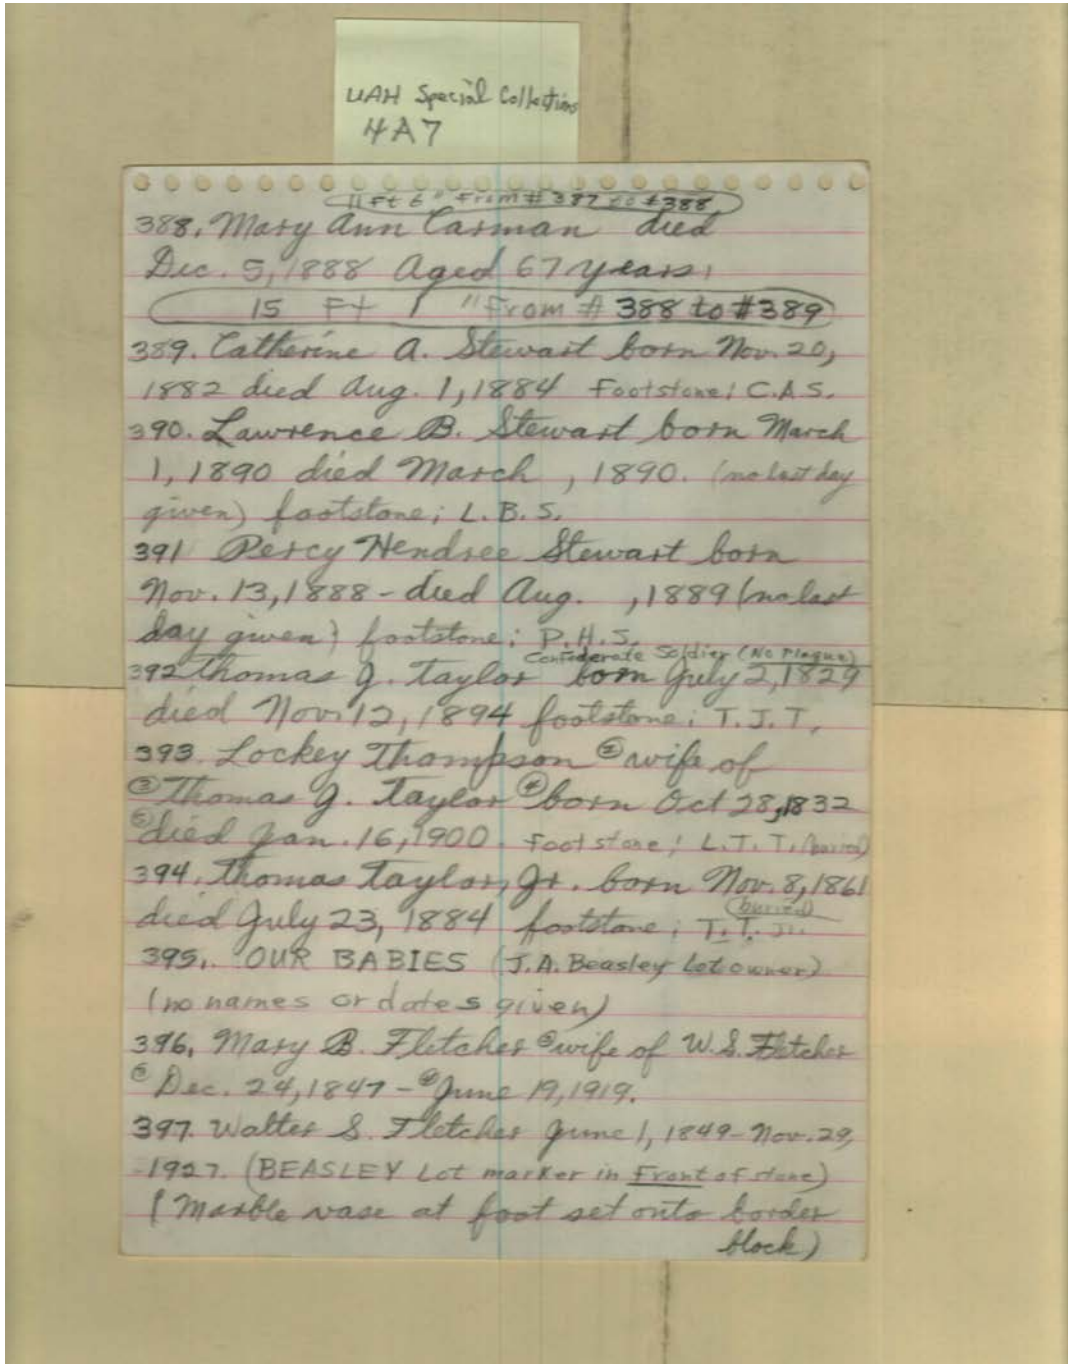 UAH Special Collections
4A7
11 Ft 6" From # 387 to #388
388. Mary Ann Carman died
Dec. 5, 1888 Aged 67 years.
15 Ft 1 "From # 388 to #389
389. Catherine A. Stewart born Nov. 20,
1882 died Aug. 1, 1884 Footstone; C.A.S.
390. Lawrence B. Stewart born March
1, 1890 died March , 1890. (no last day
given) footstone; L.B.S.
391 Percy Hendree Stewart born
Nov. 13, 1888 - died Aug. , 1889 (no last
day given) footstone; P.H.S.
Confederate Soldier (No Plaque)
392 Thomas J. Taylor born July 2, 1829
died Nov. 12, 1894 footstone; T.J.T.
393. Lockey Thompson ② wife of
③ Thomas J. Taylor ④ born Oct 28, 1832
⑤ died Jan. 16, 1900. Footstone; L.T.T. (buried)
394. Thomas Taylor, Jr. born Nov. 8, 1861
(buried)
died July 23, 1884 footstone; T.T. Jr.
395. OUR BABIES (J.A. Beasley Lot owner)
(no names or dates given)
396. Mary B. Fletcher ② wife of W.S. Fletcher
③ Dec. 24, 1847 - ④ June 19, 1919.
397. Walter S. Fletcher June 1, 1849 - Nov. 29,
1927. (BEASLEY Lot marker in Front of stone)
(Marble vase at foot set onto border
block)